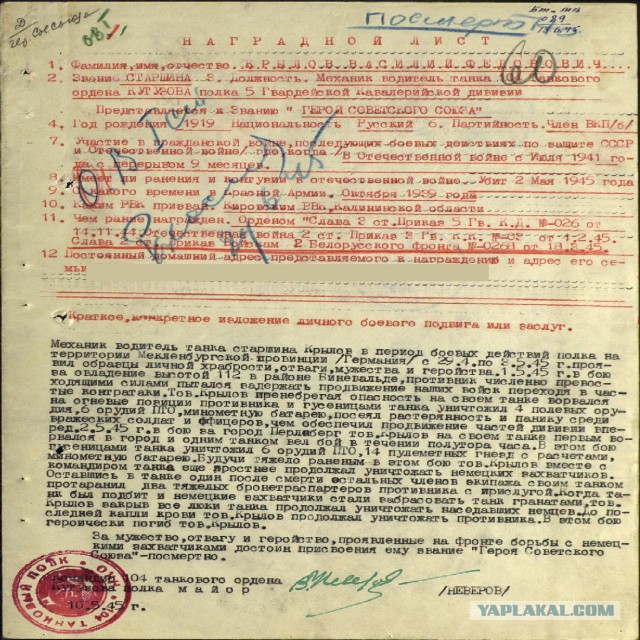 Посмертно
НАГРАДНОЙ ЛИСТ
1. Фамилия,имя,отчество КРЫЛОВ ВАСИЛИЙ ФЕДОРОВИЧ.
2. Звание СТАРШИНА 3. Должность. Механик водитель танка танкового
ордена КУТУЗОВА полка 5 Гвардейской Кавалерийской дивизии
Представляется к Званию " ГЕРОЙ СОВЕТСКОГО СОЮЗА"
4. Год рождения 1919 Национальность Русский 6. Партийность.Член ВКП/б/
7. Участие в гражданской войне,последующих боевых действиях по защите СССР
и Отечественной войне/ где,когда /В Отечественной войне с Июля 1941 го-
да с перерывом 9 месяцев.
8. Имеет ли ранения и контузии в отечественной войне. Убит 2 Мая 1945 года
9. С какого времени в Красной Армии. Октября 1939 года
10. Каким РВК призван Кировским РВК,Калининской области.
11. Чем ранее награжден. Орденом "Слава 3 ст.Приказ 5 Гв. К.Д. №-026 от
14.11.44 Отечественная война 2 ст. Приказ 3 Гв. К.К. от 1.2.45.
Слава 2 Приказ войскам 2 Белорусского фронта №-026
12 Постоянный домашний адрес представляемого к награждению и адрес его се-
мьи
Краткое,конкретное изложение личного боевого подвига или заслуг.
Механик водитель танка старшина Крылов в период боевых действий полка на
территории Мекленбургской провинции /Германия/ с 29.4.по 3.5.45 г.проя-
вил образцы личной храбрости,отваги,мужества и геройства.1.5.45 г.в бою
за овладение высотой 112 в районе Биневальде,противник численно превос-
ходящими силами пытался задержать продвижение наших войск переходя в час-
тые контратаки.Тов.Крылов пренебрегая опасность на своем танке ворвался
на огневые позиции противника и гусеницами танка уничтожил 4 полевых ору-
дия,6 орудий ПТО,минометную батарею,посеял растерянность и панику среди
вражеских солдат и офицеров,чем обеспечил продвижение частей дивизии впе-
ред.2.5.45 г.в бою за город Перлеберг тов.Крылов на своем танке первым во-
рвался в город и одним танком вел бой в течении полутора часа.В этом бою
гусеницами танка уничтожил 6 орудий ПТО,14 пулеметных гнезд с расчетами,
минометную батарею.Будучи тяжело раненым в этом бою тов.Крылов вместе с
командиром танка еще яростнее продолжал уничтожать немецких захватчиков.
Оставшись в танке один после смерти остальных членов экипажа своим танком
протаранил два тяжелых бронетраспартеров противника с прислугой.Когда та-
нк был подбит и немецкие захватчики стали забрасовать танк гранатами,тов.
Крылов закрыв все люки танка продолжал уничтожать наседавших немцев.До по-
следней капли крови тов.Крылов продолжал уничтожать противника.В этом бою
героически погиб тов.Крылов.
За мужество,отвагу и геройство,проявленные на фронте борьбы с немец-
кими захватчиками достоин присвоения ему звание "Героя Советского
Союза"-посмертно.
Командир 104 танкового ордена
Кутузова полка майор /НЕВЕРОВ/
10.5.45 г.
YAPLAKAL.COM